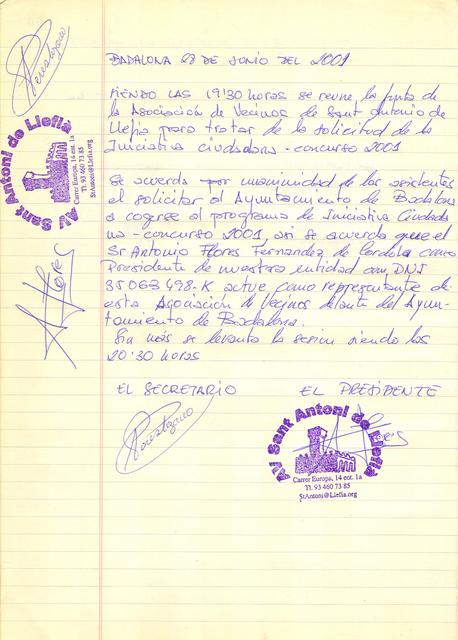 BADALONA 28 DE JUNIO DEL 2001
SIENDO LAS 19'30 horas se reune la junta de
la Asociación de Vecinos de Sant Antonio de
Llefia para tratar de la solicitud de la
Iniciativa ciudadana - concurso 2001
Se acuerda por unanimidad de los asistentes
el solicitar al Ayuntamiento de Badalona
acogerse al programa de Iniciativa Ciudada
na - concurso 2001, asi se acuerda que el
Sr Antonio Flores Fernandez de Cordoba como
Presidente de nuestra entidad con DNI
35063498-K actue como representante de
esta Asociación de Vecinos delante del Ayun-
tamiento de Badalona.
Sin más se levanta la sesion siendo las
20:30 horas
EL SECRETARIO EL PRESIDENTE
AV Sant Antoni de Llefià
Carrer Europa, 14 ent. 1a
Tl. 93 460 73 85
StAntoni@Llefia.org
AV Sant Antoni de Llefià
Carrer Europa, 14 ent. 1a
Tl. 93 460 73 85
StAntoni@Llefia.org